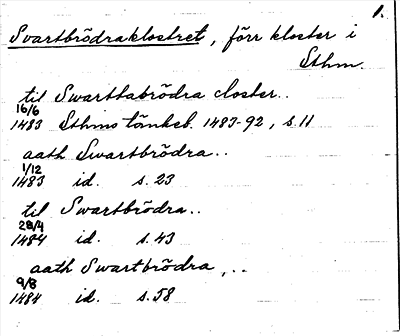 1.
Svartbrödraklostret, förr kloster i
Sthm.
til Swarttabrödra closter..
16/6
1483 Sthms tänkeb. 1483-92, s. 11
aath Swartbrödra..
1/12
1483 id. s. 23
til Swartbrödra..
28/4
1484 id. s. 43
aath Swartbrödra,..
9/8
1484 id. s. 58